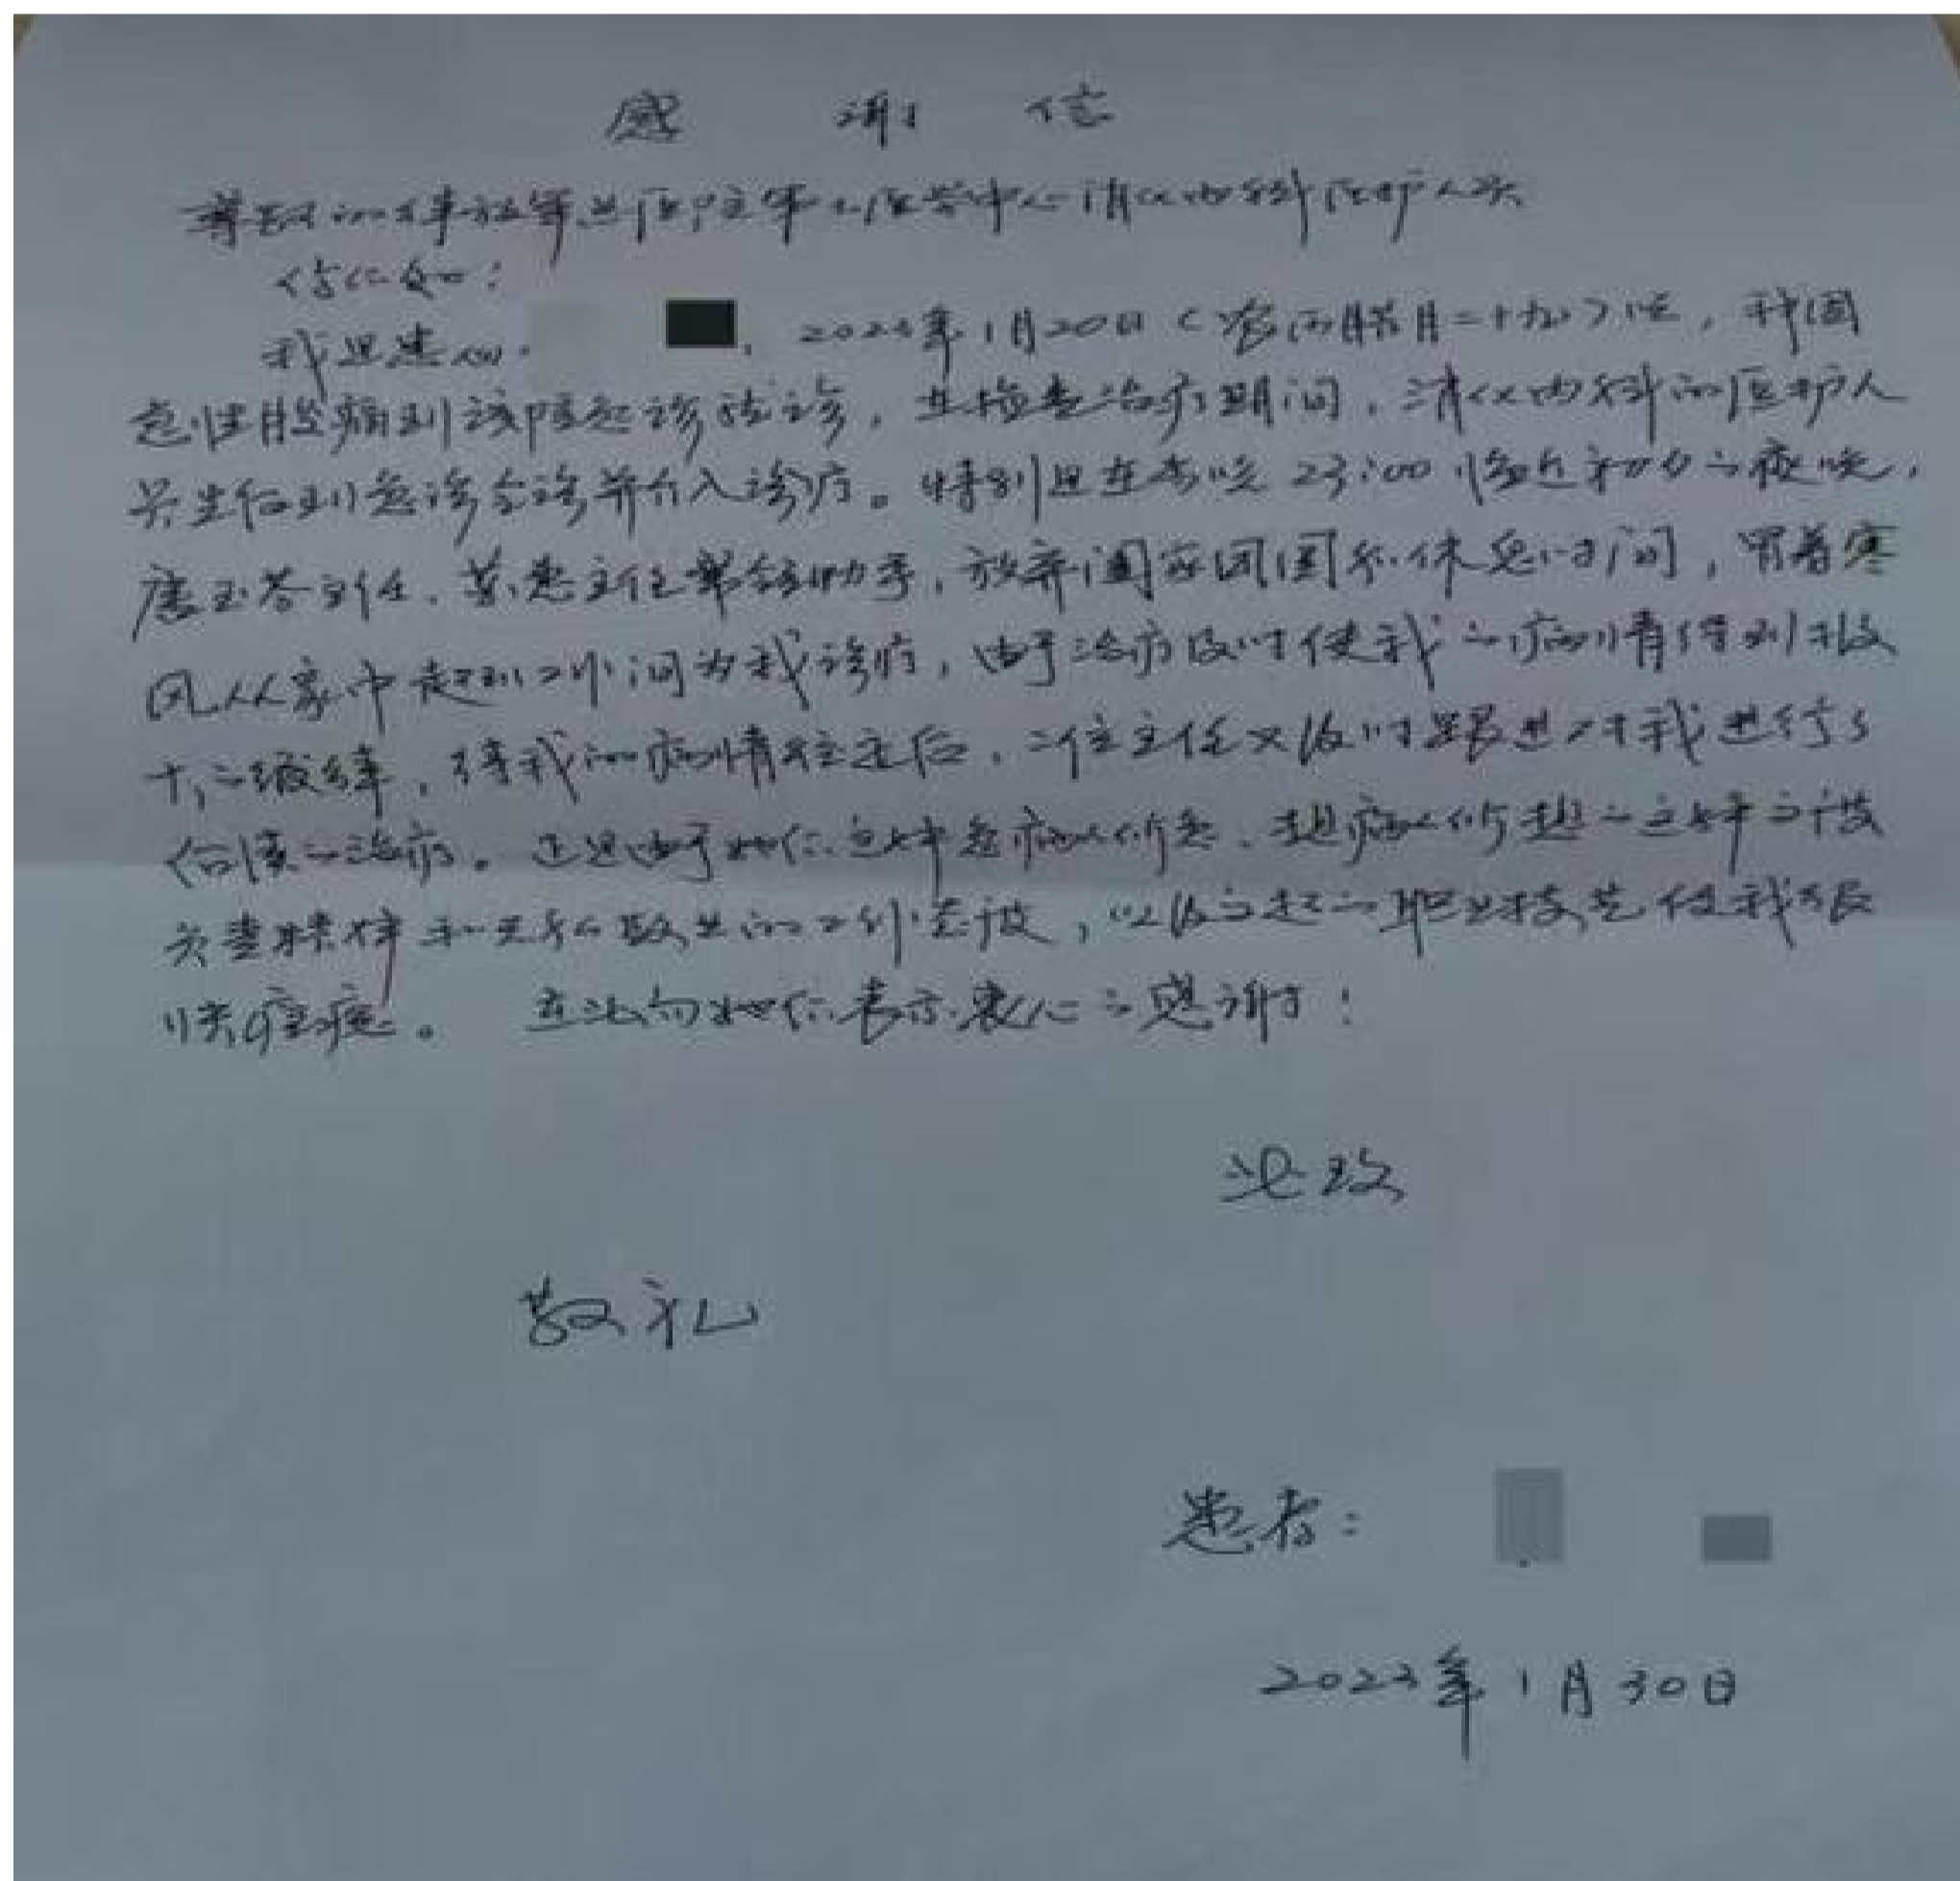 感谢信
尊敬的解放军总医院海军医学中心消化内科医护人员
们你们好：
我是患者 2023年1月20日（农历腊月二十九）晚，我因
急性腹痛到该院急诊就诊，在检查治疗期间，消化内科的医护人
员先后到急诊会诊并介入诊疗。特别是在当晚23:00 夜晚，
主任、主任带领助手，放弃阖家团圆和休息时间，冒着寒
风从家中赶到工作间为我诊疗，由于治疗及时使我的病情得到极
大的缓解，待我的病情稳定后，二位主任又及时跟进对我进行了
后续的治疗。正是由于她们这种急病人所急、想病人所想的这种
精神和无私敬业的工作态度，以及高超的职业技艺使我很
快痊愈。 在此向她们表示衷心的感谢！
此致
敬礼
患者：
2023年1月30日